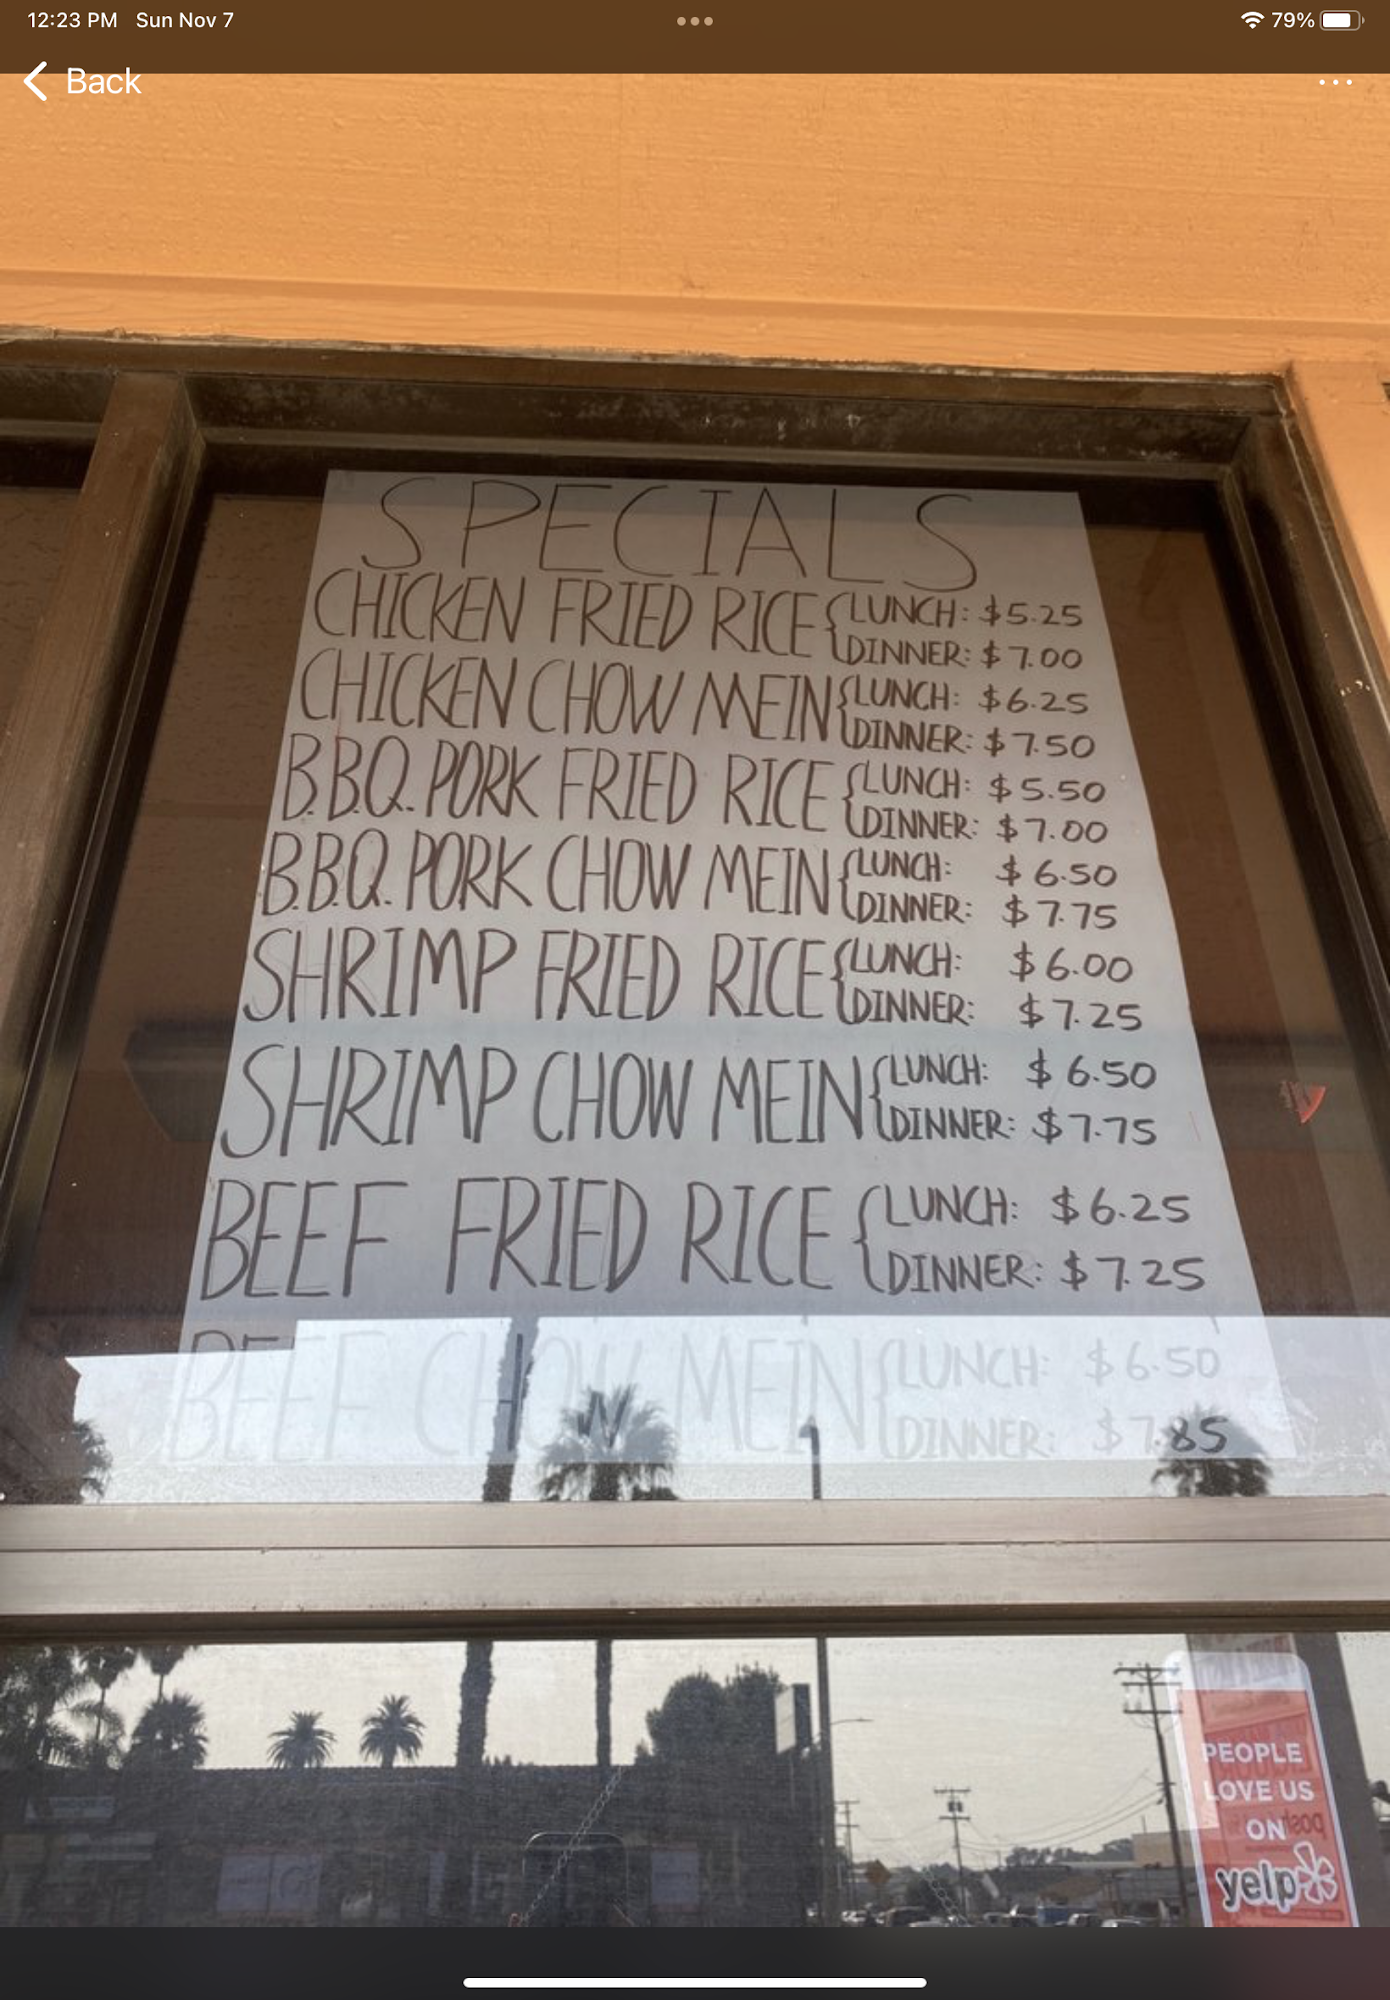 12:23 PM Sun Nov 7
79%
Back
SPECIALS
CHICKEN FRIED RICE { LUNCH: $5.25
DINNER: $7.00
CHICKEN CHOW MEIN { LUNCH: $6.25
DINNER: $7.50
B.B.Q. PORK FRIED RICE { LUNCH: $5.50
DINNER: $7.00
B.B.Q. PORK CHOW MEIN { LUNCH: $6.50
DINNER: $7.75
SHRIMP FRIED RICE { LUNCH: $6.00
DINNER: $7.25
SHRIMP CHOW MEIN { LUNCH: $6.50
DINNER: $7.75
BEEF FRIED RICE { LUNCH: $6.25
DINNER: $7.25
BEEF CHOW MEIN { LUNCH: $6.50
DINNER: $7.85
PEOPLE
LOVE US
ON
yelp